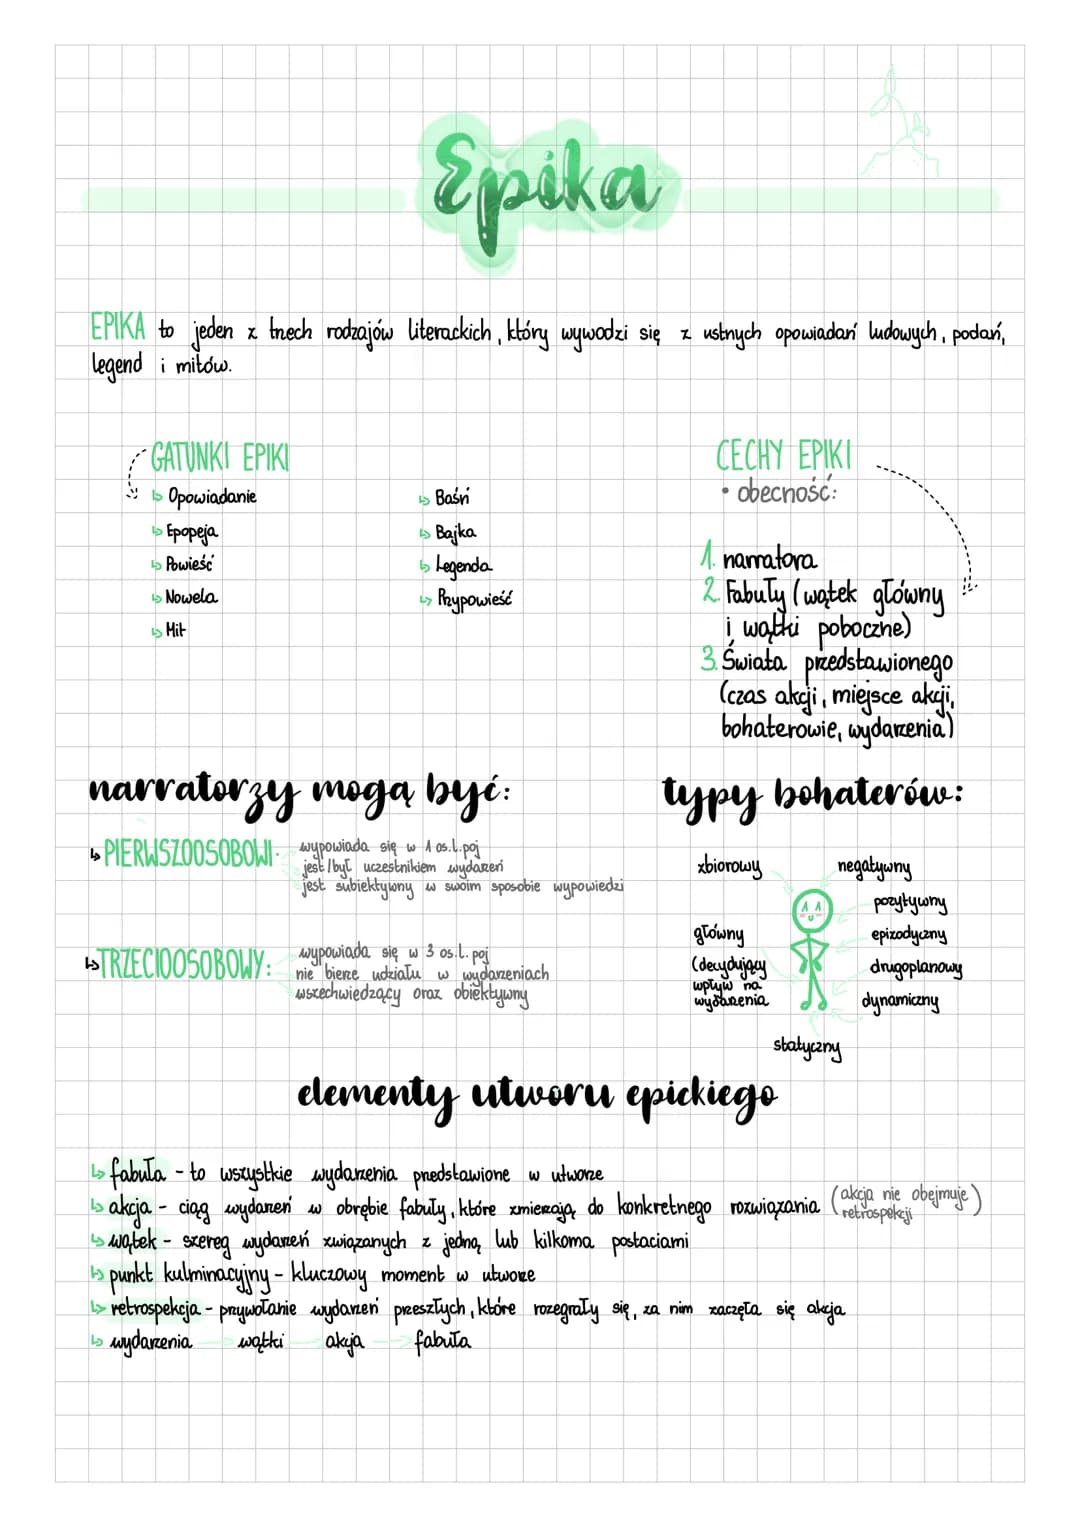 Epika
EPIKA to jeden z trzech rodzajów literackich, który wywodzi się z ustnych opowiadań ludowych, podań,
legend i mitów.
GATUNKI EPIKI
↳ Opowiadanie
↳ Epopeja
↳ Powieść
↳ Nowela
↳ Mit
↳ Baśń
↳ Bajka
↳ Legenda
↳ Przypowieść
CECHY EPIKI
• obecność:
1. narratora
2. Fabuły (wątek główny
i wątki poboczne)
3. Świata przedstawionego
(czas akcji, miejsce akcji,
bohaterowie, wydarzenia)
narratorzy mogą być:
↳ PIERWSZOOSOBOWI:
wypowiada się w 1 os.l.poj
jest/był uczestnikiem wydarzeń
jest subiektywny w swoim sposobie wypowiedzi
↳ TRZECIOOSOBOWY:
wypowiada się w 3 os.l.poj
nie bierze udziału w wydarzeniach
wszechwiedzący oraz obiektywny
typy bohaterów:
zbiorowy
negatywny
pozytywny
główny
(decydujący
wpływ na
wydarzenia
epizodyczny
drugoplanowy
dynamiczny
statyczny
elementy utworu epickiego
↳ fabuła - to wszystkie wydarzenia przedstawione w utworze
↳ akcja - ciąg wydarzeń w obrębie fabuły, które zmierzają do konkretnego rozwiązania (akcja nie obejmuje
retrospekcji)
↳ wątek - szereg wydarzeń związanych z jedną lub kilkoma postaciami
↳ punkt kulminacyjny - kluczowy moment w utworze
↳ retrospekcja - przywołanie wydarzeń przeszłych, które rozegrały się, za nim zaczęła się akcja
↳ wydarzenia → wątki → akcja → fabuła